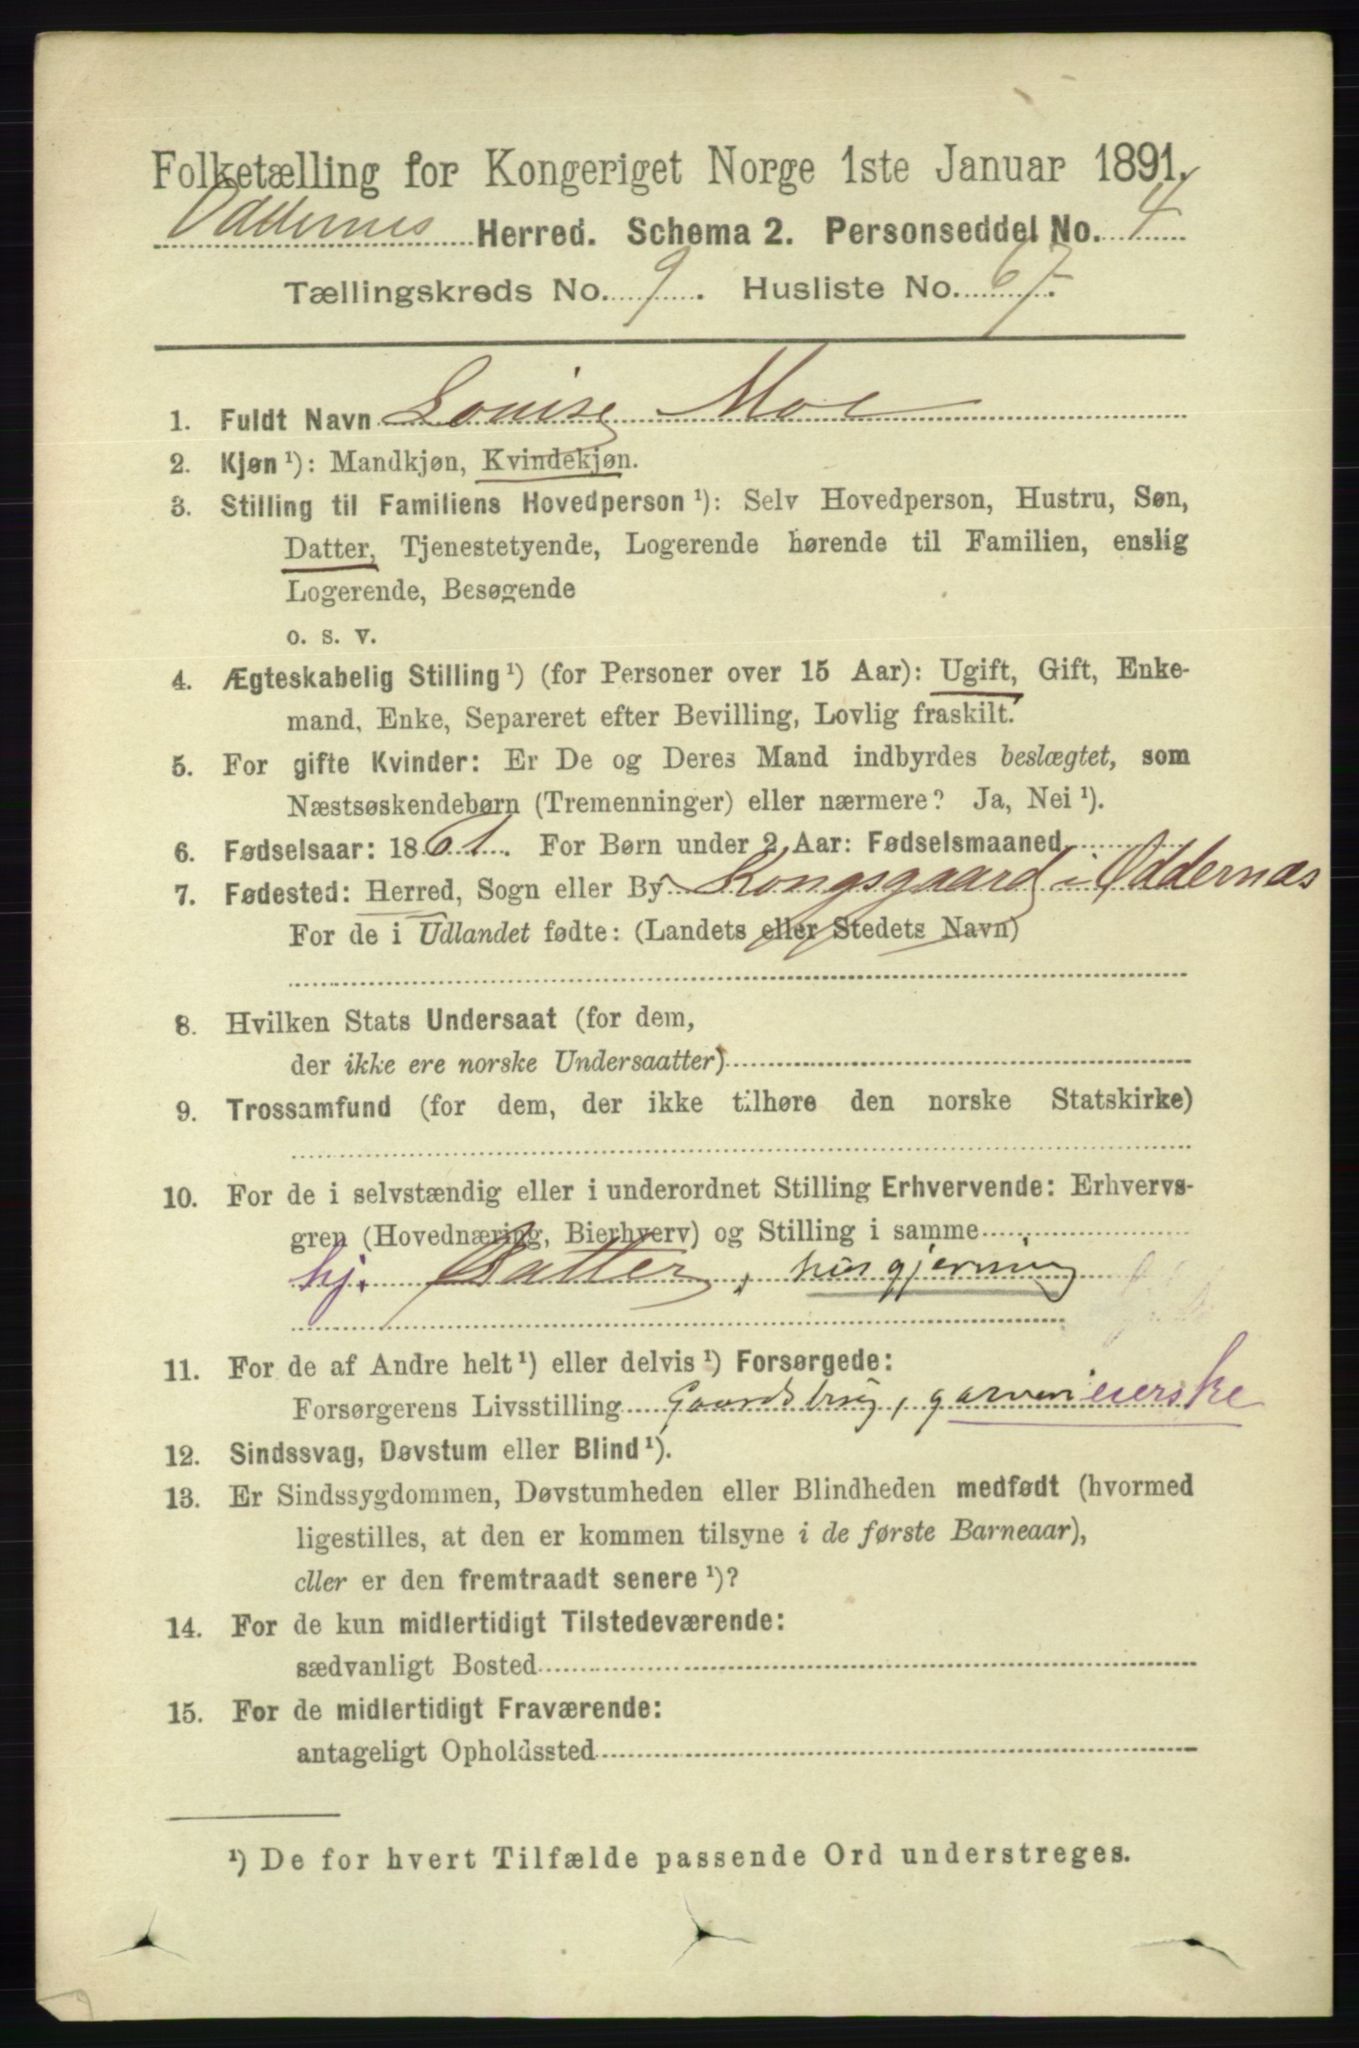 Folketælling for Kongeriget Norge 1ste Januar 1891.
Oddernes Herred. Schema 2. Personseddel No. 4
Tællingskreds No. 9. Husliste No. 67.
1. Fuldt Navn Louise Moe
2. Kjøn ¹): Mandkjøn, Kvindekjøn.
3. Stilling til Familiens Hovedperson ¹): Selv Hovedperson, Hustru, Søn,
Datter, Tjenestetyende, Logerende hørende til Familien, enslig
Logerende, Besøgende
o. s. v.
4. Ægteskabelig Stilling ¹) (for Personer over 15 Aar): Ugift, Gift, Enke-
mand, Enke, Separeret efter Bevilling, Lovlig fraskilt.
5. For gifte Kvinder: Er De og Deres Mand indbyrdes beslægtet, som
Næstsøskendebørn (Tremenninger) eller nærmere? Ja, Nei ¹).
6. Fødselsaar: 1861. For Børn under 2 Aar: Fødselsmaaned
7. Fødested: Herred, Sogn eller By Kongsgaard i Oddernæs
For de i Udlandet fødte: (Landets eller Stedets Navn)
8. Hvilken Stats Undersaat (for dem,
der ikke ere norske Undersaatter)
9. Trossamfund (for dem, der ikke tilhøre den norske Statskirke)
10. For de i selvstændig eller i underordnet Stilling Erhvervende: Erhvervs-
gren (Hovednæring, Bierhverv) og Stilling i samme
hj. Datter, husgjerning
11. For de af Andre helt ¹) eller delvis ¹) Forsørgede:
Forsørgerens Livsstilling Gaardsbrug, garverieierske
12. Sindssvag, Døvstum eller Blind ¹).
13. Er Sindssygdommen, Døvstumheden eller Blindheden medfødt (hvormed
ligestilles, at den er kommen tilsyne i de første Barneaar),
eller er den fremtraadt senere ¹)?
14. For de kun midlertidigt Tilstedeværende:
sædvanligt Bosted
15. For de midlertidigt Fraværende:
antageligt Opholdssted
¹) De for hvert Tilfælde passende Ord understreges.